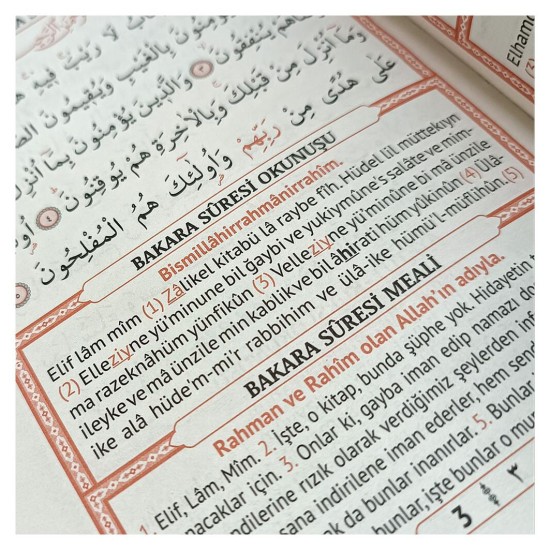 لَا رَيْبَ فِيهِ
يُؤْمِنُونَ بِالْغَيْبِ وَيُقِيمُونَ
يُنْفِقُونَ ﴿٣﴾ وَالَّذِينَ يُؤْمِنُونَ بِمَا أُنْزِلَ
وَمَا أُنْزِلَ مِنْ قَبْلِكَ وَبِالْآخِرَةِ هُمْ يُوقِنُونَ ﴿٤﴾
عَلَى هُدًى مِنْ رَبِّهِمْ وَأُولَئِكَ هُمُ الْمُفْلِحُونَ
BAKARA SÛRESİ OKUNUŞU
Bismillâhirrahmânirrahîm.
Elif lâm mîm (1) Zâlikel kitabü lâ raybe fîh. Hüdel lil müttekıyn
(2) Elleziyne yü'minune bil ğaybi ve yukiymûne's salâte ve mim-
ma razeknâhüm yünfikûn (3) Velleziyne yü'minûne bi mâ ünzile
ileyke ve mâ ünzile min kablik ve bil âhirati hüm yûkinûn (4) Ülâ-
ike alâ hüde'm-mi'r rabbihim ve ülâ-ike hümü'l-müflihûn.(5)
BAKARA SÛRESİ MEALİ
Rahman ve Rahîm olan Allah'ın adıyla.
1. Elif, Lâm, Mîm. 2. İşte, o kitap, bunda şüphe yok. Hidayetin
nacaklar için. 3. Onlar ki, gayba iman edip namazı
ndilerine rızık olarak verdiğimiz şeylerden
sana indirilene iman ederler, hem
da bunlar inanırlar. 5. Bunlar
bunlar, işte bunlar o
3 ٣
Elham